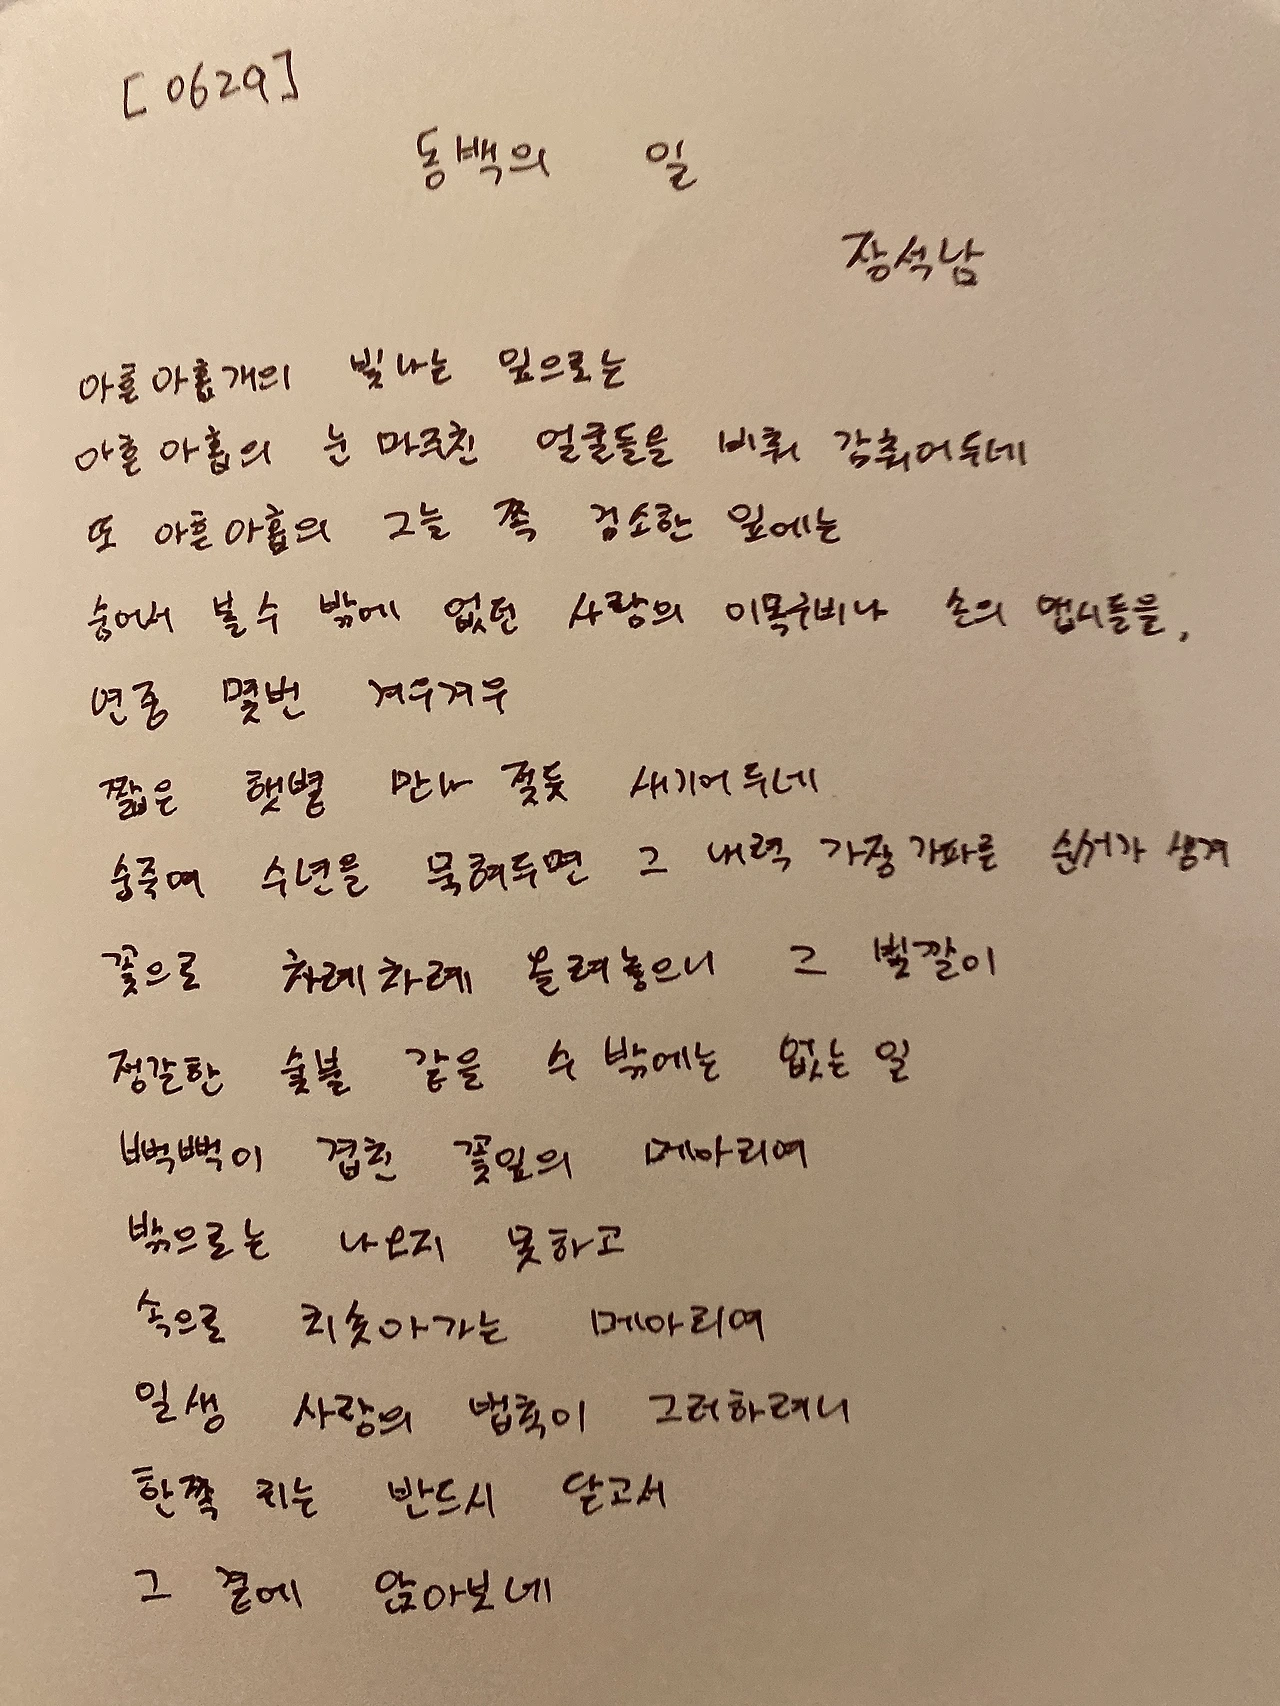 [0629]
동백의 일
장석남
아흔아홉개의 빛나는 잎으로는
아흔아홉의 눈 마주친 얼굴들을 비춰 감춰어두네
또 아흔아홉의 그늘 쪽 검소한 잎에는
숨어서 볼 수 밖에 없던 사랑의 이목구비나 손의 맵시들을,
연중 몇번 겨우겨우
짧은 햇볕 만나 젖듯 새기어두네
숨죽여 수년을 묵혀두면 그 내력 가장 가파른 순서가 생겨
꽃으로 차례차례 올려놓으니 그 빛깔이
정갈한 숯불 같을 수 밖에는 없는 일
빽빽이 겹친 꽃잎의 메아리여
밖으로는 나오지 못하고
속으로 치솟아가는 메아리여
일생 사랑의 법측이 그러하려니
한쪽 귀는 반드시 닫고서
그 곁에 앉아보네